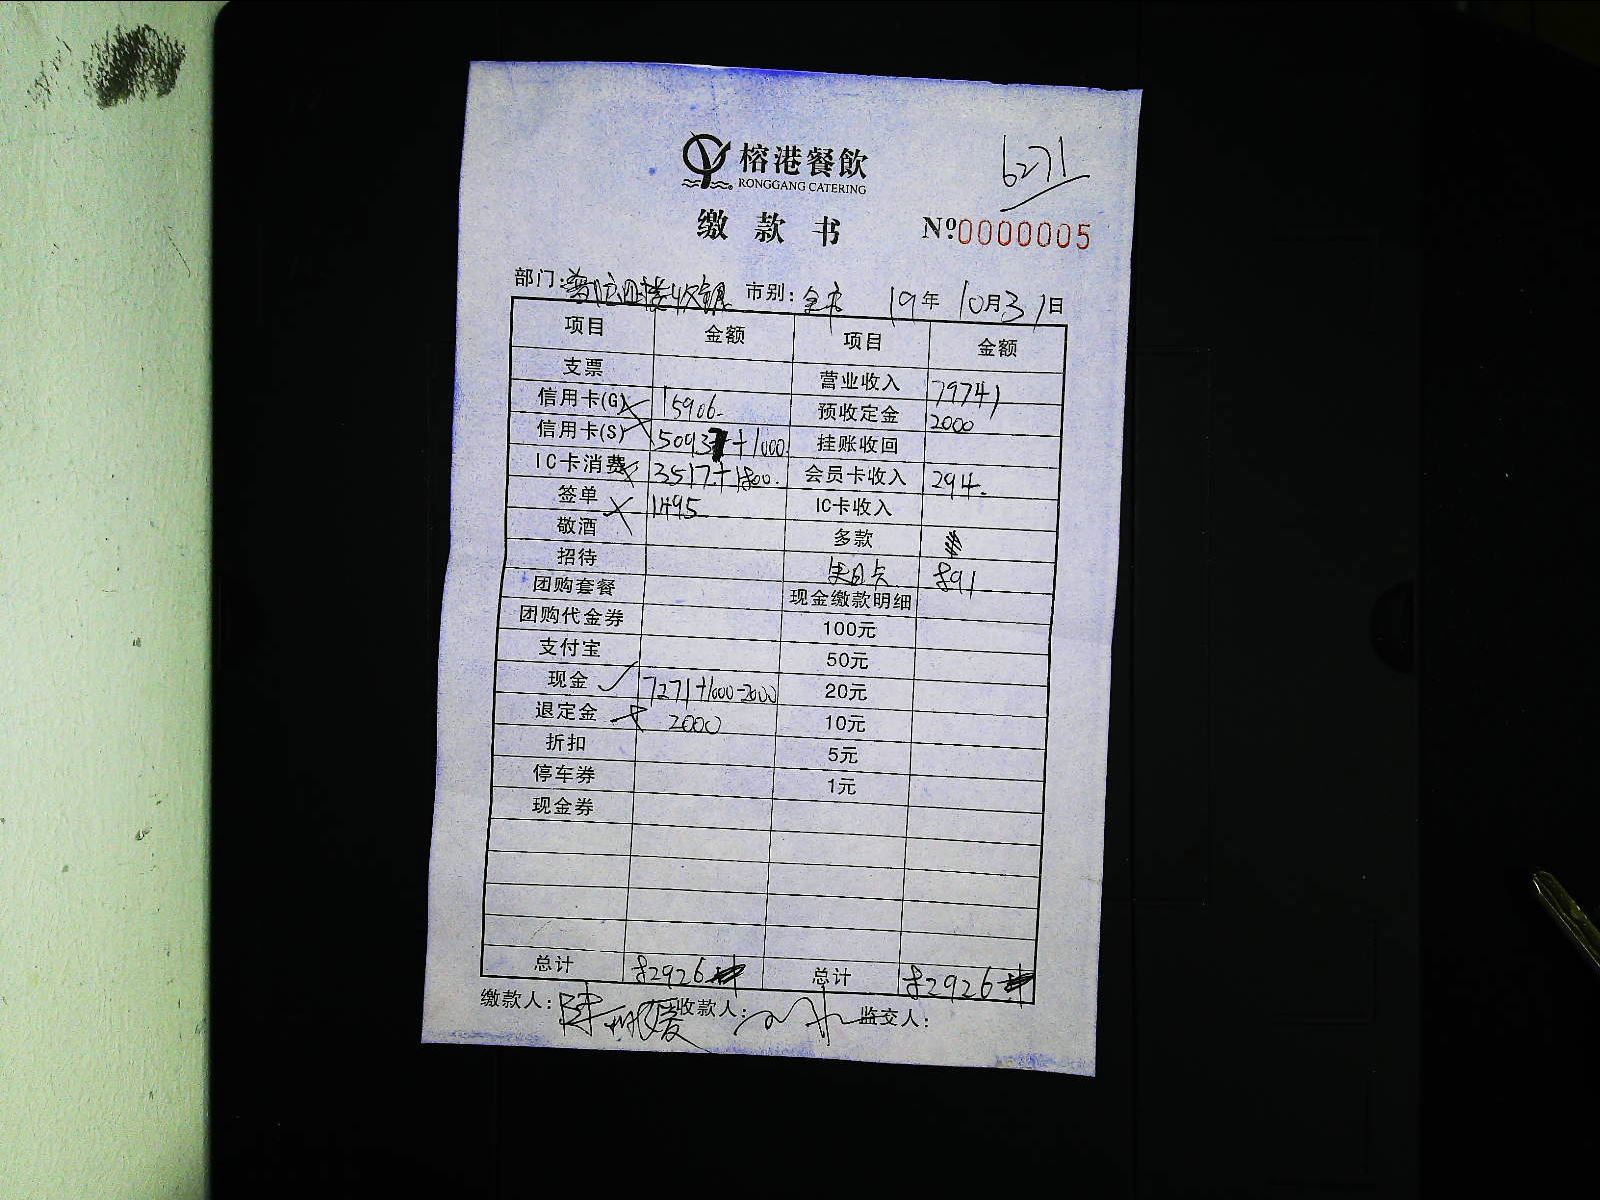 榕港餐飲
RONGGANG CATERING
6271
缴款书 Nº0000005
部门: 收银 市别: 全市 19年10月31日
项目 金额 项目 金额
支票 营业收入 79741
信用卡(G) 15906. 预收定金 2000
信用卡(S) 5093 +1000. 挂账收回
IC卡消费 3517.+1800. 会员卡收入 294.
签单 1495 IC卡收入
敬酒 多款
招待 891
团购套餐 现金缴款明细
团购代金券 100元
支付宝 50元
现金 7271+1000-2000 20元
退定金 2000 10元
折扣 5元
停车券 1元
现金券
总计 82926 总计 82926
缴款人: 收款人: 监交人: